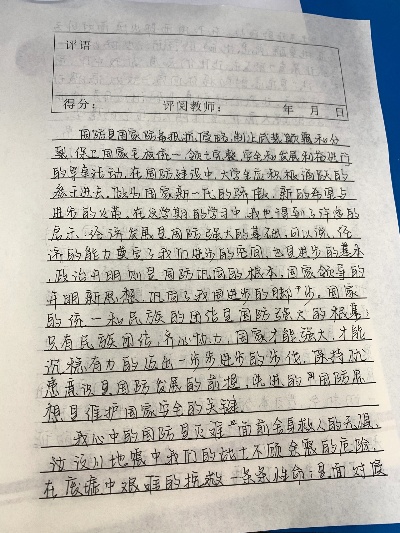 评语
得分： 评阅教师： 年 月 日
国防是国家防备抵抗侵略,制止武装颠覆和分
裂,保卫国家主权统一,领土完整,安全和发展利益进行
的军事活动,在国防建设中,大学生应积极踊跃的
参与进去,做为国家新一代的骄傲,新的希望与
进步的火苗,在这学期的学习中,我也得到了许多的
启示,经济发展是国防强大的基础,可以说,经
济的能力奠定了我们进步的空间,也是进步的基本
,政治开明则是国防巩固的根本,国家领导的
开明新思想,巩固了我国进步的脚步。国家
的统一和民族的团结是国防强大的根基:
只有民族团结,齐心协力,国家才能强大,才能
沉稳有力的迈出一步步进步的步伐,保持忧
患意识是国防发展的前提,先进的国防思
想是维护国家安全的关键.
我心中的国防是灾难面前舍身救人的无畏,
汶川地震中我们的战士不顾余震的危险,
在废墟中艰难的拯救一条条性命;是面对